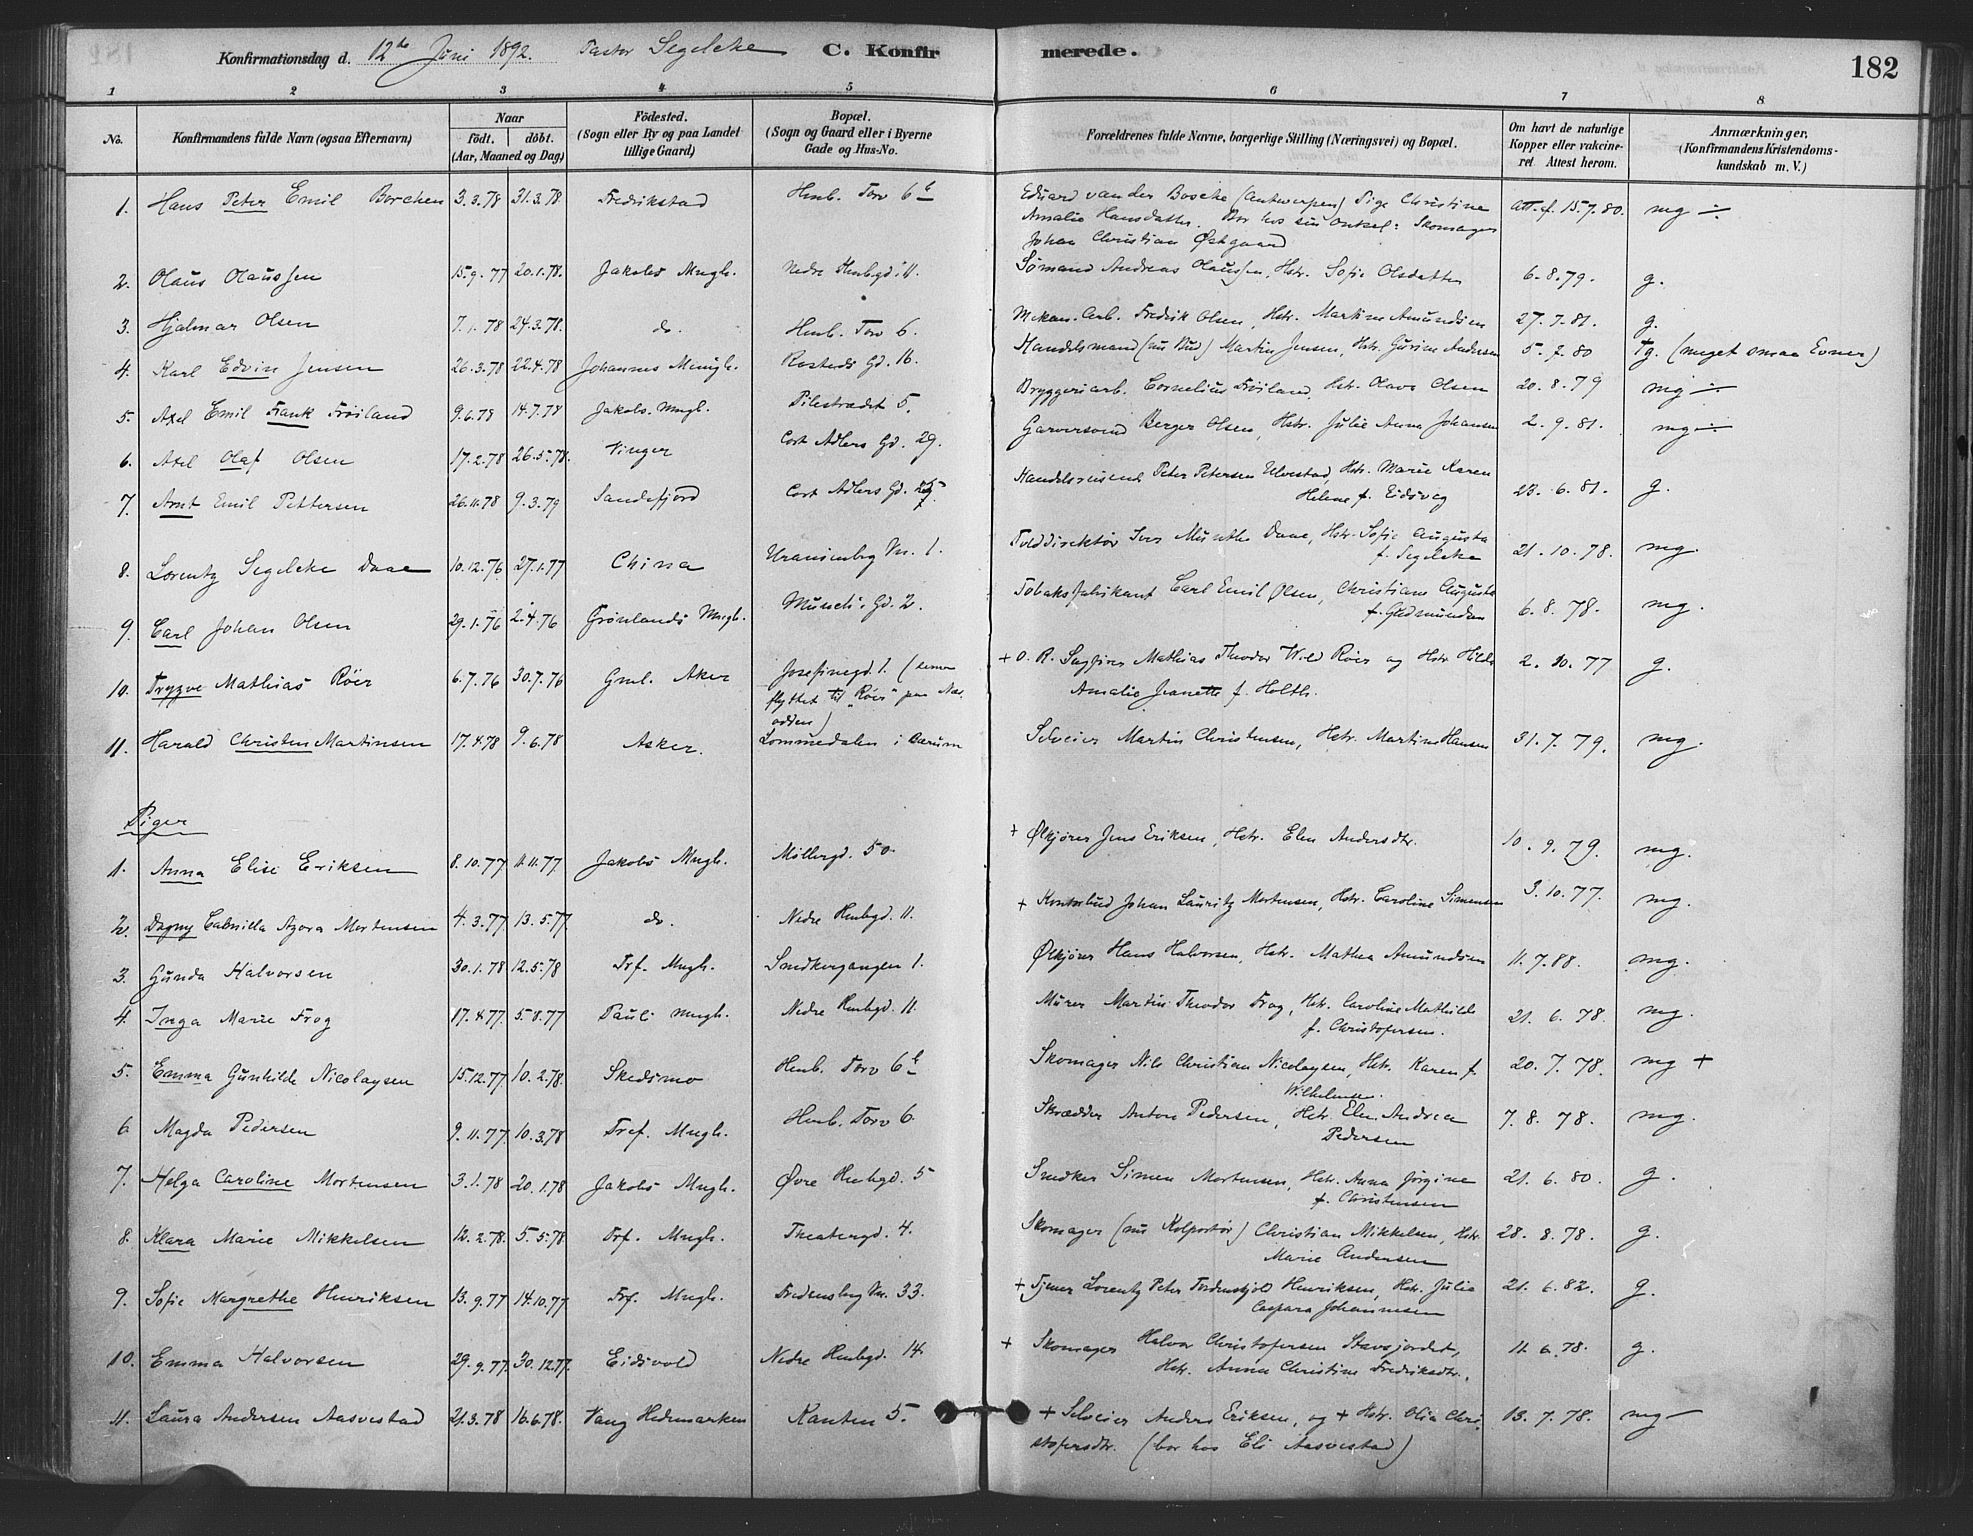 Konfirmationsdag d. 12te Juni 1892. Pastor Segelcke C. Konfirmerede. 182
1 2 3 4 5 6 7 8
No. Konfirmandens fulde Navn (ogsaa Efternavn) Naar födt. döbt. (Aar, Maaned og Dag) Födested. (Sogn eller By og paa Landet tillige Gaard) Bopæl. (Sogn og Gaard eller i Byerne Gade og Hus-No. Forældrenes fulde Navne, borgerlige Stilling (Næringsvei) og Bopæl. Om havt de naturlige Kopper eller vakcineret. Attest herom. Anmærkninger, (Konfirmandens Kristendomskundskab m. V.)
1. Hans Peter Emil Borchen 3.3.78 31.3.78 Fredrikstad Henb. Torv 6b Eduard van der Bosche (Antwerpen) Pige Christine
Amalie Hansdatter. Bor hos sin Onkel: Skomager
Johan Christian Østgaard att. f. 15.7.80. mg ÷
2. Olaus Olaussen 15.9.77 20.1.78. Jakobs Mngh. Nedre Henbgd. 11. Sømand Andreas Olaussen, Hstr. Sofie Olsdatter 6.8.79. g.
3. Hjalmar Olsen 7.1.78 24.3.78. do. Henb. Torv 6. Mekan. Arb. Fredrik Olsen, Hstr. Martine Amundsen 27.7.81. g.
4. Karl Edvin Jensen 26.3.78 22.4.78 Johannes Menigh. Rosteds Gd. 16. Handelsmand (nu Bud) Martin Jensen, Hstr. Gurine Andersen 5.7.80 Tg. (meget smaa Evner)
5. Axel Emil Frank Frøiland 9.6.78 14.7.78 Jakobs Mngh. Pilestrædet 5. Bryggeriarb. Cornelius Frøiland, Hstr. Olava Olsen 20.8.79 mg ÷
6. Axel Olaf Olsen 17.2.78 26.5.78. Vinger Cort Adlers Gd. 29. Garversvend Berger Olsen, Hstr. Julie Anna Johansen 2.9.81. mg ÷
7. Arnt Emil Pettersen 26.11.78 9.3.79 Sandefjord Cort Adlers Gd. Handelsreisende Peter Petersen Ulvestad, Hstr. Marie Karen
Helene f. Eidsvag 23.6.81. g.
8. Lorentz Segelcke Daae 10.12.76 27.1.77 China Uranienbrg Vn. 1. Tolddirektør Iver Munthe Daae, Hstr. Sofie Augusta
f. Segelcke 21.10.78. mg.
9. Carl Johan Olsen 29.1.76 2.4.76 Grønlands Mngh. Musæts Gd. 2. Tobaksfabrikant Carl Emil Olsen, Christiane Augusta
f. Gudmundsen 6.8.78. mg.
10. Trygve Mathias Röer 6.7.76 30.7.76 Gml. Aker Josefinegd. 1. (senere
flyttet til "Röer" paa Næs-
odden) + O. R. Sagfører Mathias Theodor Wild Röer og Hstr Hilda
Amalie Jeanette f. Holth. 2.10.77 g.
11. Harald Christen Martinsen 17.4.78 9.6.78 Asker. Lommedalen i Bærum Selveier Martin Christensen, Hstr. Martine Hansen 31.7.79. mg.
Piger
1. Anna Elise Eriksen 8.10.77 11.11.77 Jakobs Mngh. Møllergd. 50. + Ølkjører Jens Eriksen, Hstr. Elen Andersdtr. 10.9.79. mg.
2. Dagny Gabrielle Agora Mortensen 4.3.77 13.5.77 do. Nedre Henbgd. 11. + Kontorbud Johan Lauritz Mortensen, Hstr. Caroline Simensen 3.10.77. mg.
3. Gunda Halvorsen 30.1.78 12.5.78 Trf. Mngh. Smedkergangen 1. Ølkjører Hans Halvorsen, Hstr. Mathea Amundsen 11.7.88. mg.
4. Inga Marie Frog 17.4.77. 5.8.77 Pauli Mngh. Nedre Henbgd. 11. Murer Martin Theodor Frog, Hstr. Caroline Mathilde
f. Christofersen. 21.6.78. mg.
5. Emma Gunhilde Nicolaysen 15.12.77 10.2.78. Skedsmo Henb. Torv 6b Skomager Nils Christian Nicolaysen, Hstr. Karen f.
Wilhelmsen. 20.7.78. mg +
6 Magda Pedersen 9.11.77. 10.3.78 Tref. Mngh. Henb. Torv 6. Skrædder Anton Pedersen, Hstr. Elen Andrea
Pedersen 7.8.78. mg.
7. Helga Caroline Mortensen 3.1.78 20.1.78 Jakobs Mngh. Øvre Henbgd. 5 Snedker Simen Mortensen, Hstr. Anna Jørgine
f. Christensen 21.6.80. g.
8. Klara Marie Mikkelsen 12.2.78. 5.5.78 Trf. Mngh. Theatergd. 4. Skomager (nu Kolportør) Christian Mikkelsen, Hstr.
Marie Andersen 28.8.78. g.
9. Sofie Margrethe Henriksen 13.9.77 14.10.77 Trf. Mngh. Fredensbrg Vn. 33. + Tjener Lorentz Peter Tordenskjold Henriksen, Hstr. Julie
Caspara Johannesen 21.6.82. g.
10. Emma Halvorsen 29.9.77. 30.12.77. Eidsvold Nedre Henbgd. 14. + Skomager Halvor Christofersen Stavsjordet,
Hstr. Anna Christine Fredriksdtr. 11.6.78. g.
11. Laura Andersen Aasvestad 21.3.78 16.6.78. Vang Hedemarken Kanten 5. + Selveier Anders Eriksen, og + Hstr. Olia Chri-
stofersdtr. (bor hos Eli Aasvestad) 13.7.78. mg –